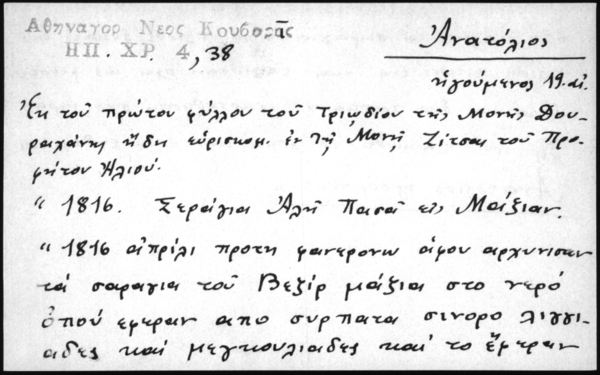 Αθηναγορ Νεος Κουβαρᾶς
ΗΠ. ΧΡ. 4, 38
Ἀνατόλιος
ἡγούμενος 19. αἰ.
Ἐκ τοῦ πρώτου φύλλου τοῦ Τριωδίου τῆς Μονῆς Δου-
ραχάνης ἤδη εὑρισκομ. ἐν τῇ Μονῇ Ζίτσας τοῦ Προ-
φήτου Ἠλιού.
" 1816. Σεράγια Ἀλῆ Πασᾶ εἰς Μάξιαν.
" 1816 ἀπρίλι προτη φανερονω ἀφου αρχινισαν
τά σαραγια τοῦ Βεζίρ μάξια στο νερό
ὁπού εφεραν απο συρπατα σινορο λιγγι-
αδες καί μεγκουλιαδες καί το ἔφεραν